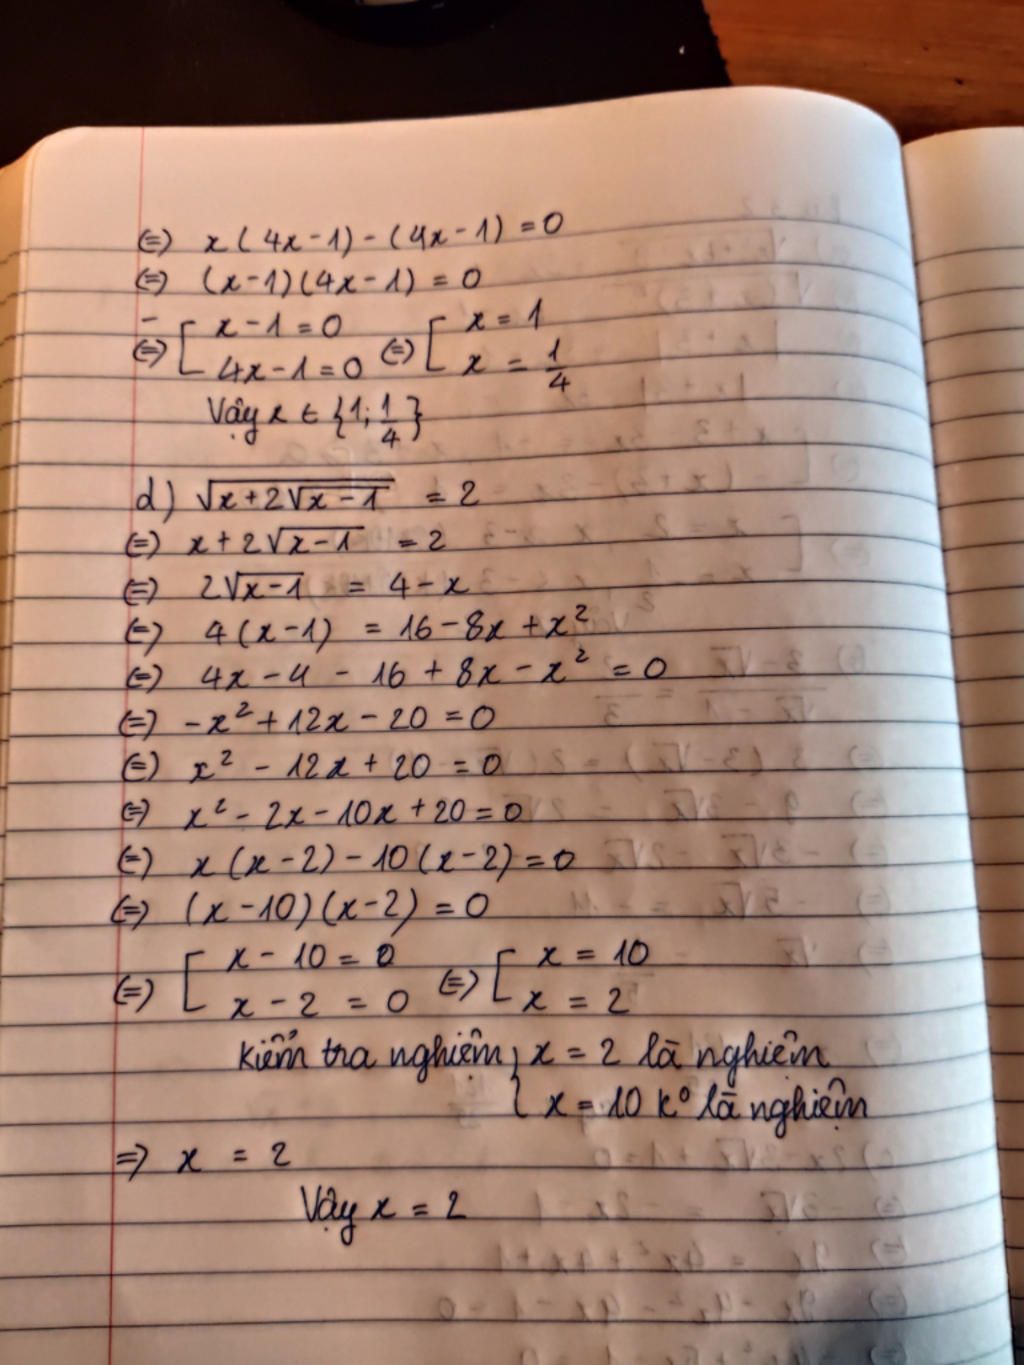 (=) x(4x-1)-(4x-1)=0
(=) (x-1)(4x-1)=0
(=) [ x-1=0 (=) [ x=1
4x-1=0 x = 1/4
Vậy x ∈ {1; 1/4}
d) √(x+2√(x-1)) = 2
(=) x+2√(x-1) = 2
(=) 2√(x-1) = 4-x
(=) 4(x-1) = 16-8x+x²
(=) 4x-4-16+8x-x² = 0
(=) -x²+12x-20=0
(=) x²-12x+20=0
(=) x²-2x-10x+20=0
(=) x(x-2)-10(x-2)=0
(=) (x-10)(x-2)=0
(=) [ x-10=0 (=) [ x=10
x-2=0 x=2
Kiểm tra nghiệm { x=2 là nghiệm
x=10 k° là nghiệm
=> x = 2
Vậy x = 2